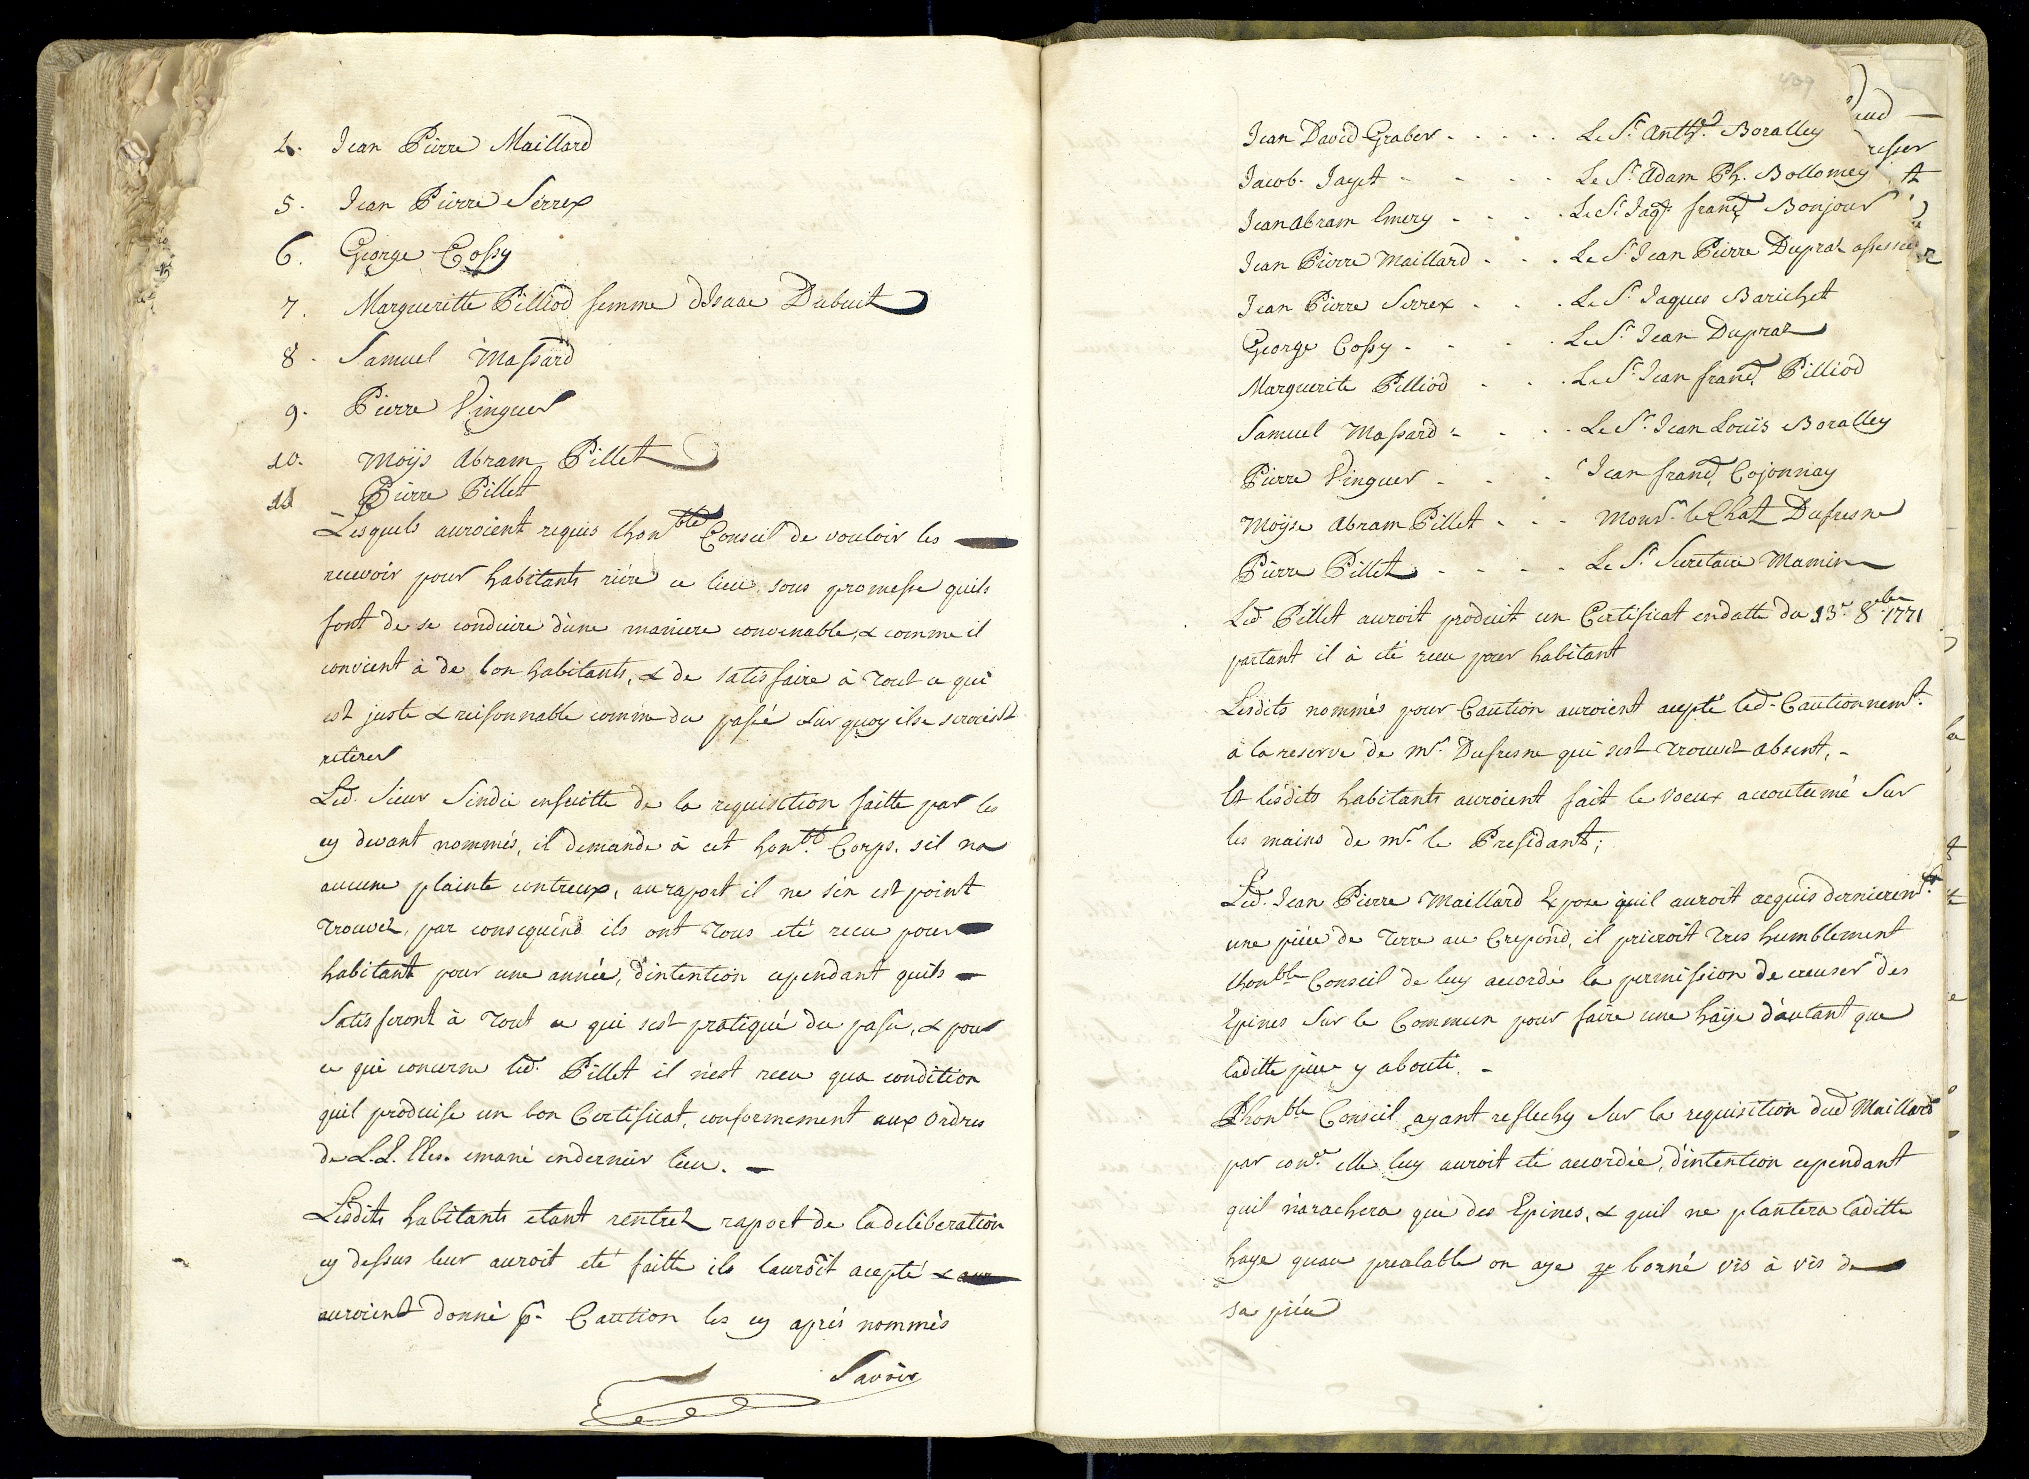 4. Jean Pierre Maillard
5. Jean Pierre Serrex
6. George Cossy
7. Margueritte Pilliod femme dIsaac Dubuit
8. Samuel Massard
9. Pierre Vinguer
10. Moÿs Abram Pillet
11 Pierre Pillet
Lesquels auroient requis lhonble Conseil de vouloir les
recevoir pour habitants riere ce lieu, sous promesse quils
font de se conduire dune maniere convenable, & comme il
convient à de bon habitants, & de satisfaire à tout ce qui
est juste & reisonnable comme du passé sur quoy ils se seroient
retirer
Led. Sieur Sindic ensuitte de la requisition faitte par les
cy devant nommés, il demande à cet honble Corps, sil na
aucune plainte contreux, au raport il ne sen est point
trouvez, par consequend ils ont tous eté recu pour
habitant pour une année, d'intention cependant quils
satisferont à tout ce qui sest pratiqué du passé, & pour
ce qui concerne led. Pillet il n'est recu qua condition
quil produise un bon Certificat, conformement aux ordres
de L.L. EEes. emané endernier lieu.
Lesdits habitants etant rentrez raport de la deliberation
cy dessus leur auroit eté faitte ils lauroit acepté &
auroient donné pr Caution les cy aprés nommés
Savoir
409
Jean David Graber - - - - - Le Sr. Anth. Boralley
Jacob Jayet - - - - Le Sr. Adam Ph. Bollomey
Jean Abram Emery - - - - Le Sr. Jaq. franç Bonjour
Jean Pierre Maillard - - - Le Sr. Jean Pierre Dupraz assesseur
Jean Pierre Serrex - - - Le Sr. Jaques Barichet
George Cossy - - - - Le Sr. Jean Dupraz
Marguerite Pilliod - - - Le Sr. Jean franç Pilliod
Samuel Massard - - - Le Sr. Jean Louïs Boralley
Pierre Vinguer - - - Jean franç Cojonnay
Moÿse Abram Pillet - - - Monsr. le Chat. Dufresne
Pierre Pillet - - - - Le Sr. Secretaire Mamin
Led. Pillet auroit produit un Certificat endatte du 13e. 8bre 1771
partant il à eté recu pour habitant
Lesdits nommés pour Caution auroient acepté led. Cautionnemt.
à la reserve de mr. Dufresne qui sest trouvez absent,
Et lesdits habitants auroient fait le voeux accoutumé sur
les mains de mr. le Presidant;
Led. Jean Pierre Maillard Expose quil auroit acquis dernieremt.
une piéce de terre au Crepond, il prieroit tres humblement
lhonble Conseil de luy accordé la permission de creuser des
Epines sur le Commun pour faire une häye d'autant que
laditte piece y abouti.
Lhonble Conseil ayant reflechy sur la requisition dud Maillard
par conr. elle luy auroit eté accordée, d'intention cependant
quil n'arachera que des Epines, & quil ne plantera laditte
haye quau prealable on aye borné vis à vis de
sa piéce